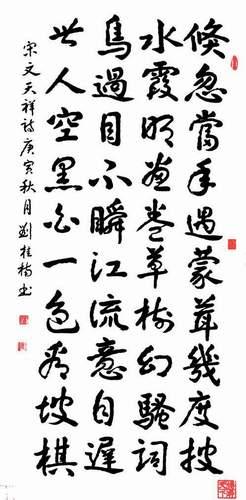 倏忽當年遇蒙茸幾度披
水霞明畫卷草樹幻騷詞
鳥過目不瞬江流意自遲
世人空黑白一色看坡棋
宋文天祥詩庚寅秋月劉桂書